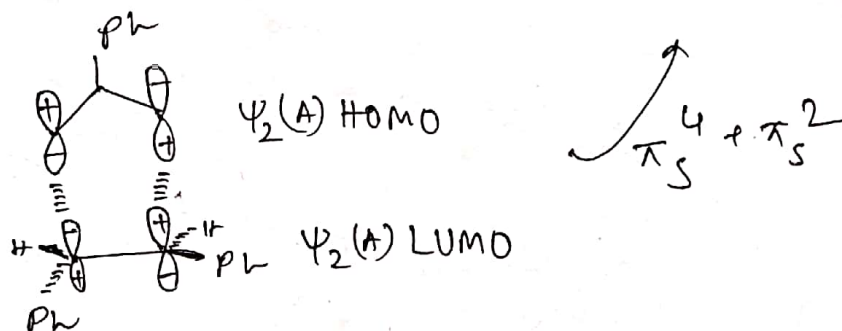 Ph
+ −
− +
Ψ₂(A) HOMO
π_S^4 + π_S^2
− + H
H
+ − Ph
Ψ₂(A) LUMO
Ph